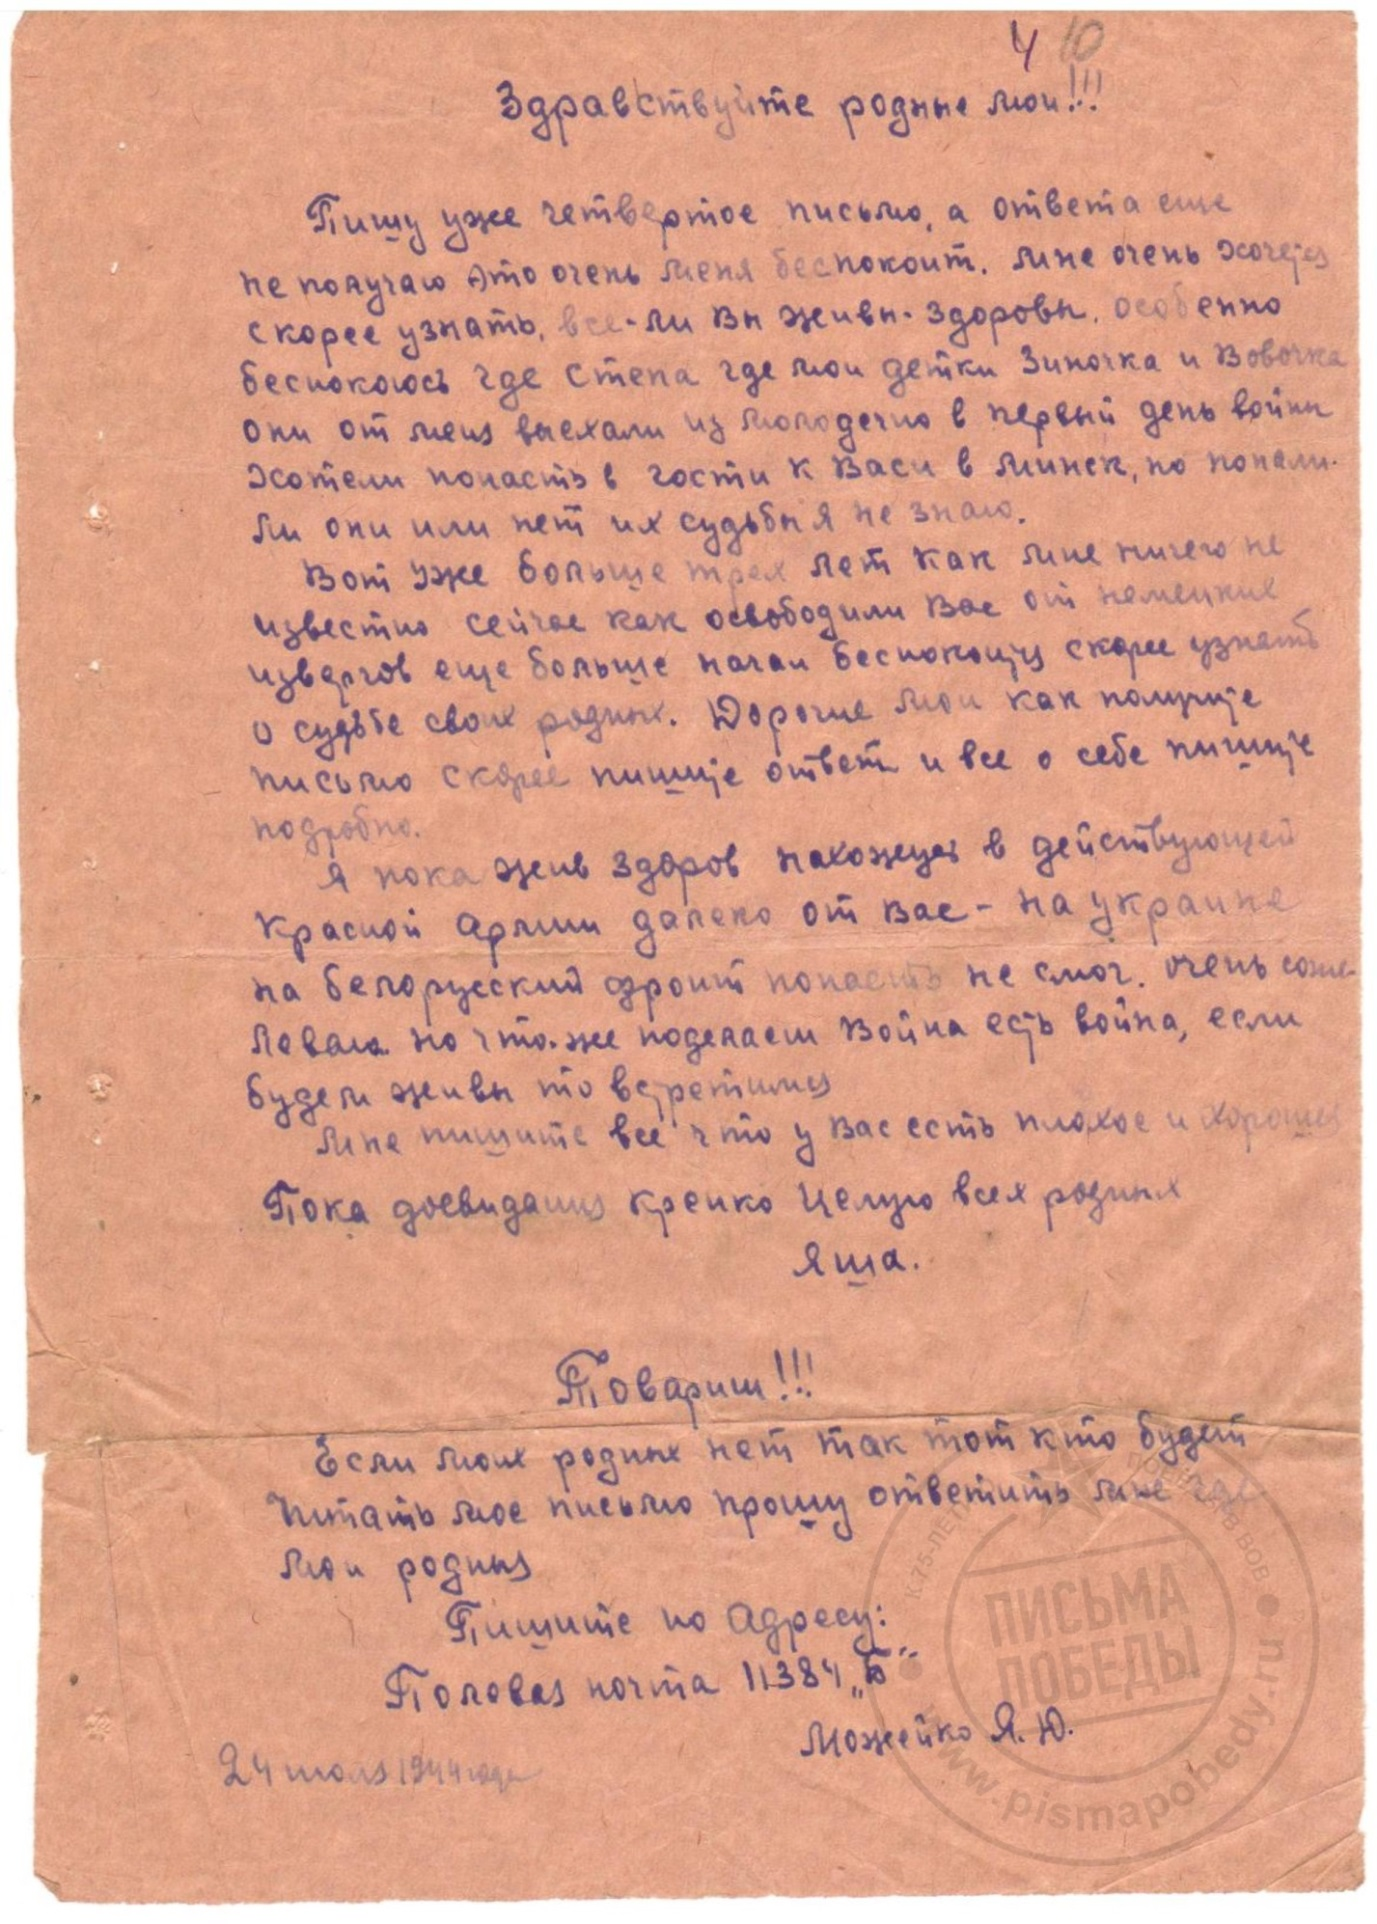 4 10
Здравствуйте родные мои!!!
Пишу уже четвертое письмо, а ответа еще
не получаю это очень меня беспокоит. Мне очень хочется
скорее узнать, все-ли Вы живы-здоровы. особенно
беспокоюсь где Степа где мои детки Зиночка и Вовочка
они от меня выехали из Молодечно в первый день войны
хотели попасть в гости к Васи в Минск, но попали-
ли они или нет их судьбы я не знаю.
Вот уже больше трех лет как мне ничего не
известно сейчас как освободили Вас от немецких
извергов еще больше начал беспокоится скорее узнать
о судьбе своих родных. Дорогие мои как получите
письмо скорее пишите ответ и все о себе пишите
подробно.
Я пока жив здоров нахожусь в действующей
Красной Армии далеко от Вас - на Украине
на белорусский фронт попасть не смог. Очень сожа-
левал но что-же поделаеш Война есть война, если
будем живы то встретимся
Мне пишите все что у Вас есть плохое и хорошее
Пока досвидания крепко целую всех родных
Яша.
Товариш!!!
Если моих родных нет так тот кто будет
читать мое письмо прошу ответить мне где
мои родныя
Пишите по адресу:
Полевая почта 11384 „Б"
Можейко Я.Ю.
24 июля 1944 года
К 75-ЛЕТИЮ ПОБЕДЫ В ВОВ
ПИСЬМА
ПОБЕДЫ
www.pismapobedy.ru